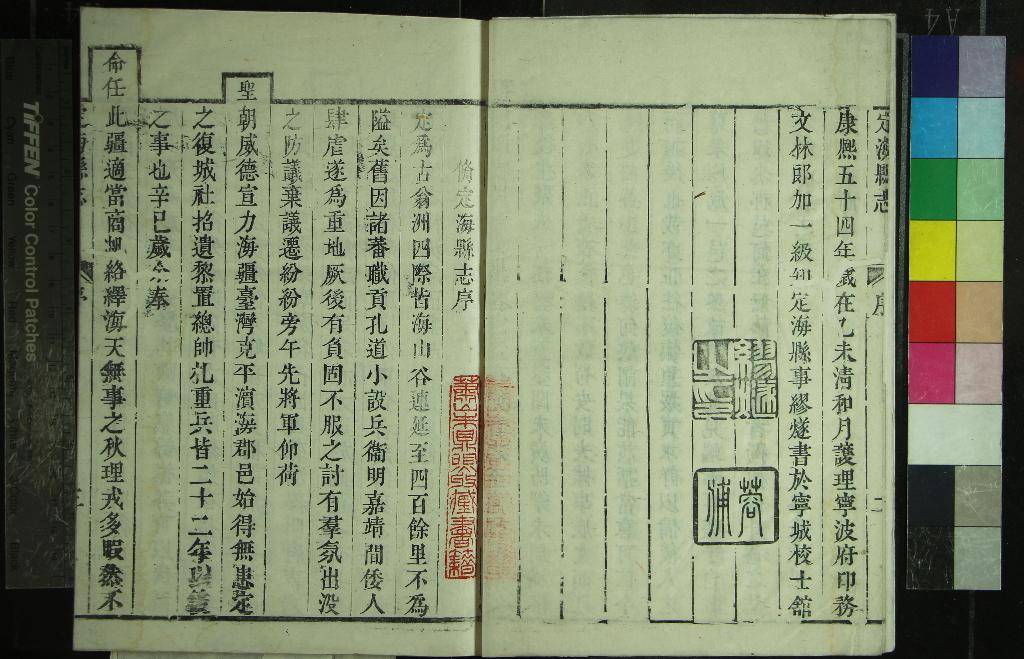 定海縣志
序
康熙五十四年歲在乙未清和月護理寧波府印務
文林郎加一級知定海縣事繆燧書於寧城校士館
蓉浦
脩定海縣志序
定爲古翁洲四際皆海山谷連延至四百餘里不爲
隘矣舊因諸蕃職貢孔道小設兵衞明嘉靖間倭人
肆虐遂爲重地厥後有負固不服之討有羣氛出没
之防議棄議遷紛紛旁午先將軍仰荷
聖朝威德宣力海疆臺灣克平濱海郡邑始得無患定
之復城社招遺黎置總帥札重兵皆二十二年
之事也辛巳歲余奉
命任此疆適當商舶絡繹海天無事之秋理戎多暇然不
蕭山朱鼎煦收藏書籍
TIFFEN Color Control Patches
A4